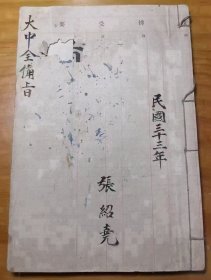 民國三十三年
張紹堯
大中全備旨